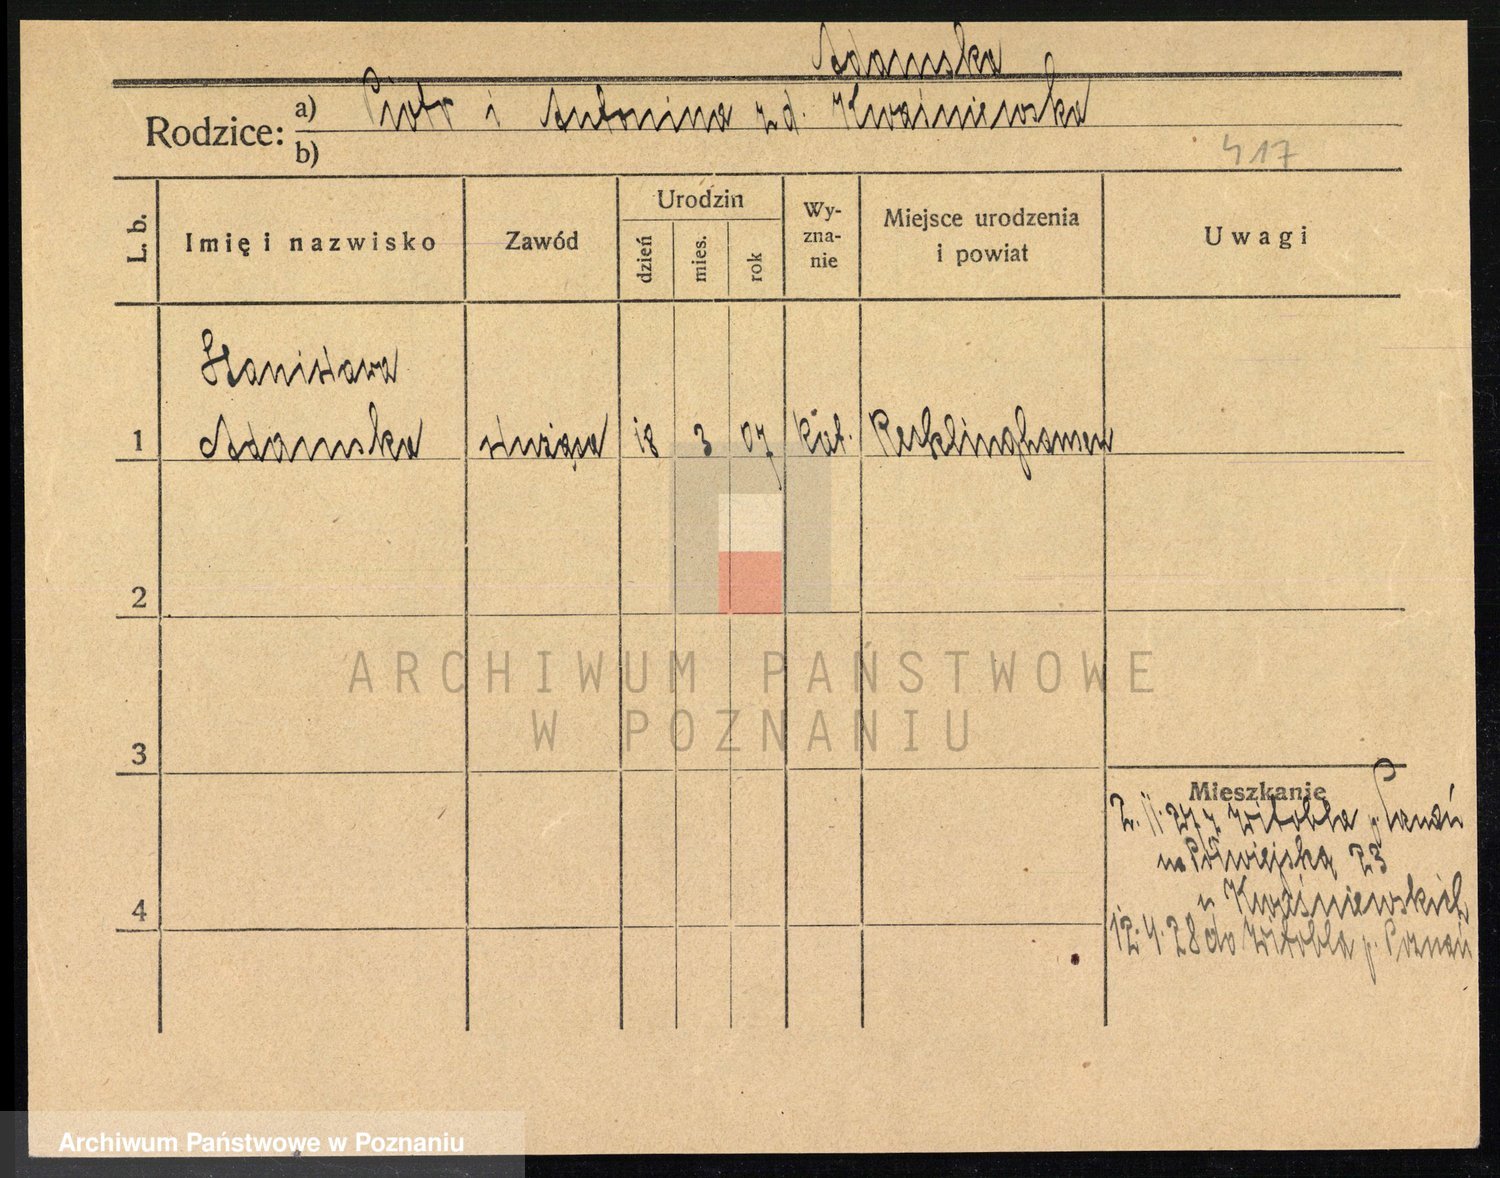 Adamska
Rodzice: a) Piotr i Antonina z d. Kwaśniewska
b)
417
L. b.
Imię i nazwisko
Zawód
Urodzin
dzień
mies.
rok
Wy-
zna-
nie
Miejsce urodzenia
i powiat
Uwagi
Stanisława
1 Adamska służąca 18 3 07 kat. Recklinghausen
2
3
4
Mieszkanie
2. 11. 27 z Witobla p. Poznań
na Półwiejską 23
u Kwaśniewskich
12. 4. 28 do Witobla p. Poznań
ARCHIWUM PAŃSTWOWE
W POZNANIU
Archiwum Państwowe w Poznaniu